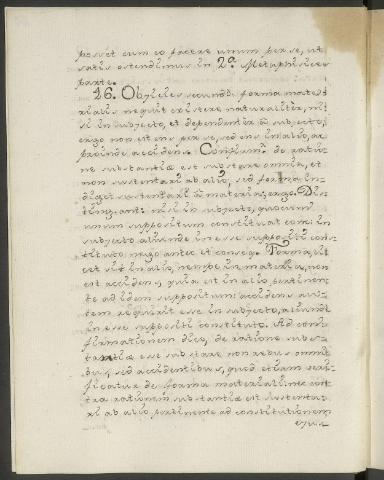 posset cum eo facere unum per se, ut
satis ostendimus in 2ª. Metaphisices
parte.
26. Objicies secundo: forma mate-
rialis nequit existere naturaliter, ni-
si in subjecto, et dependenter à subjecto,
ergo non est ens per se, sed ens in alio, ac
proinde accidens. Confirm: de ratio-
ne substantiæ est substare omnia, et
non sustentari ab alio, sed forma in-
diget sustentari à materia, ergo. Dis-
ting: ant: nisi in subjecto, quocum
unum suppositum constituat
subjecto aliunde in esse suppositi cons-
tituto nego antec et conseq. Forma, si-
cet sit in alio, nempe in materia, non
est accidens, quia est in alio pertinen-
te ad idem suppositum: accidens au-
tem requirit esse in subjecto, aliunde
in esse suppositi constituto. Ad con-
firmationem dico, de ratione subs-
tantiæ esse substare non rebus omni-
bus, sed accidentibus, quod etiam veri-
ficatur de forma materiali: nec con-
tra rationem substantiæ est sustenta-
ri ab alio pertinente ad constitutionem
ejus-